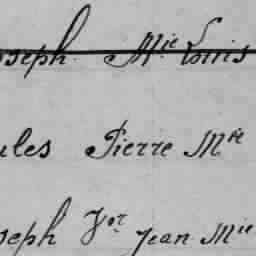 oseph Mie Louis
ules Pierre Mie
oseph Vor Jean Mie